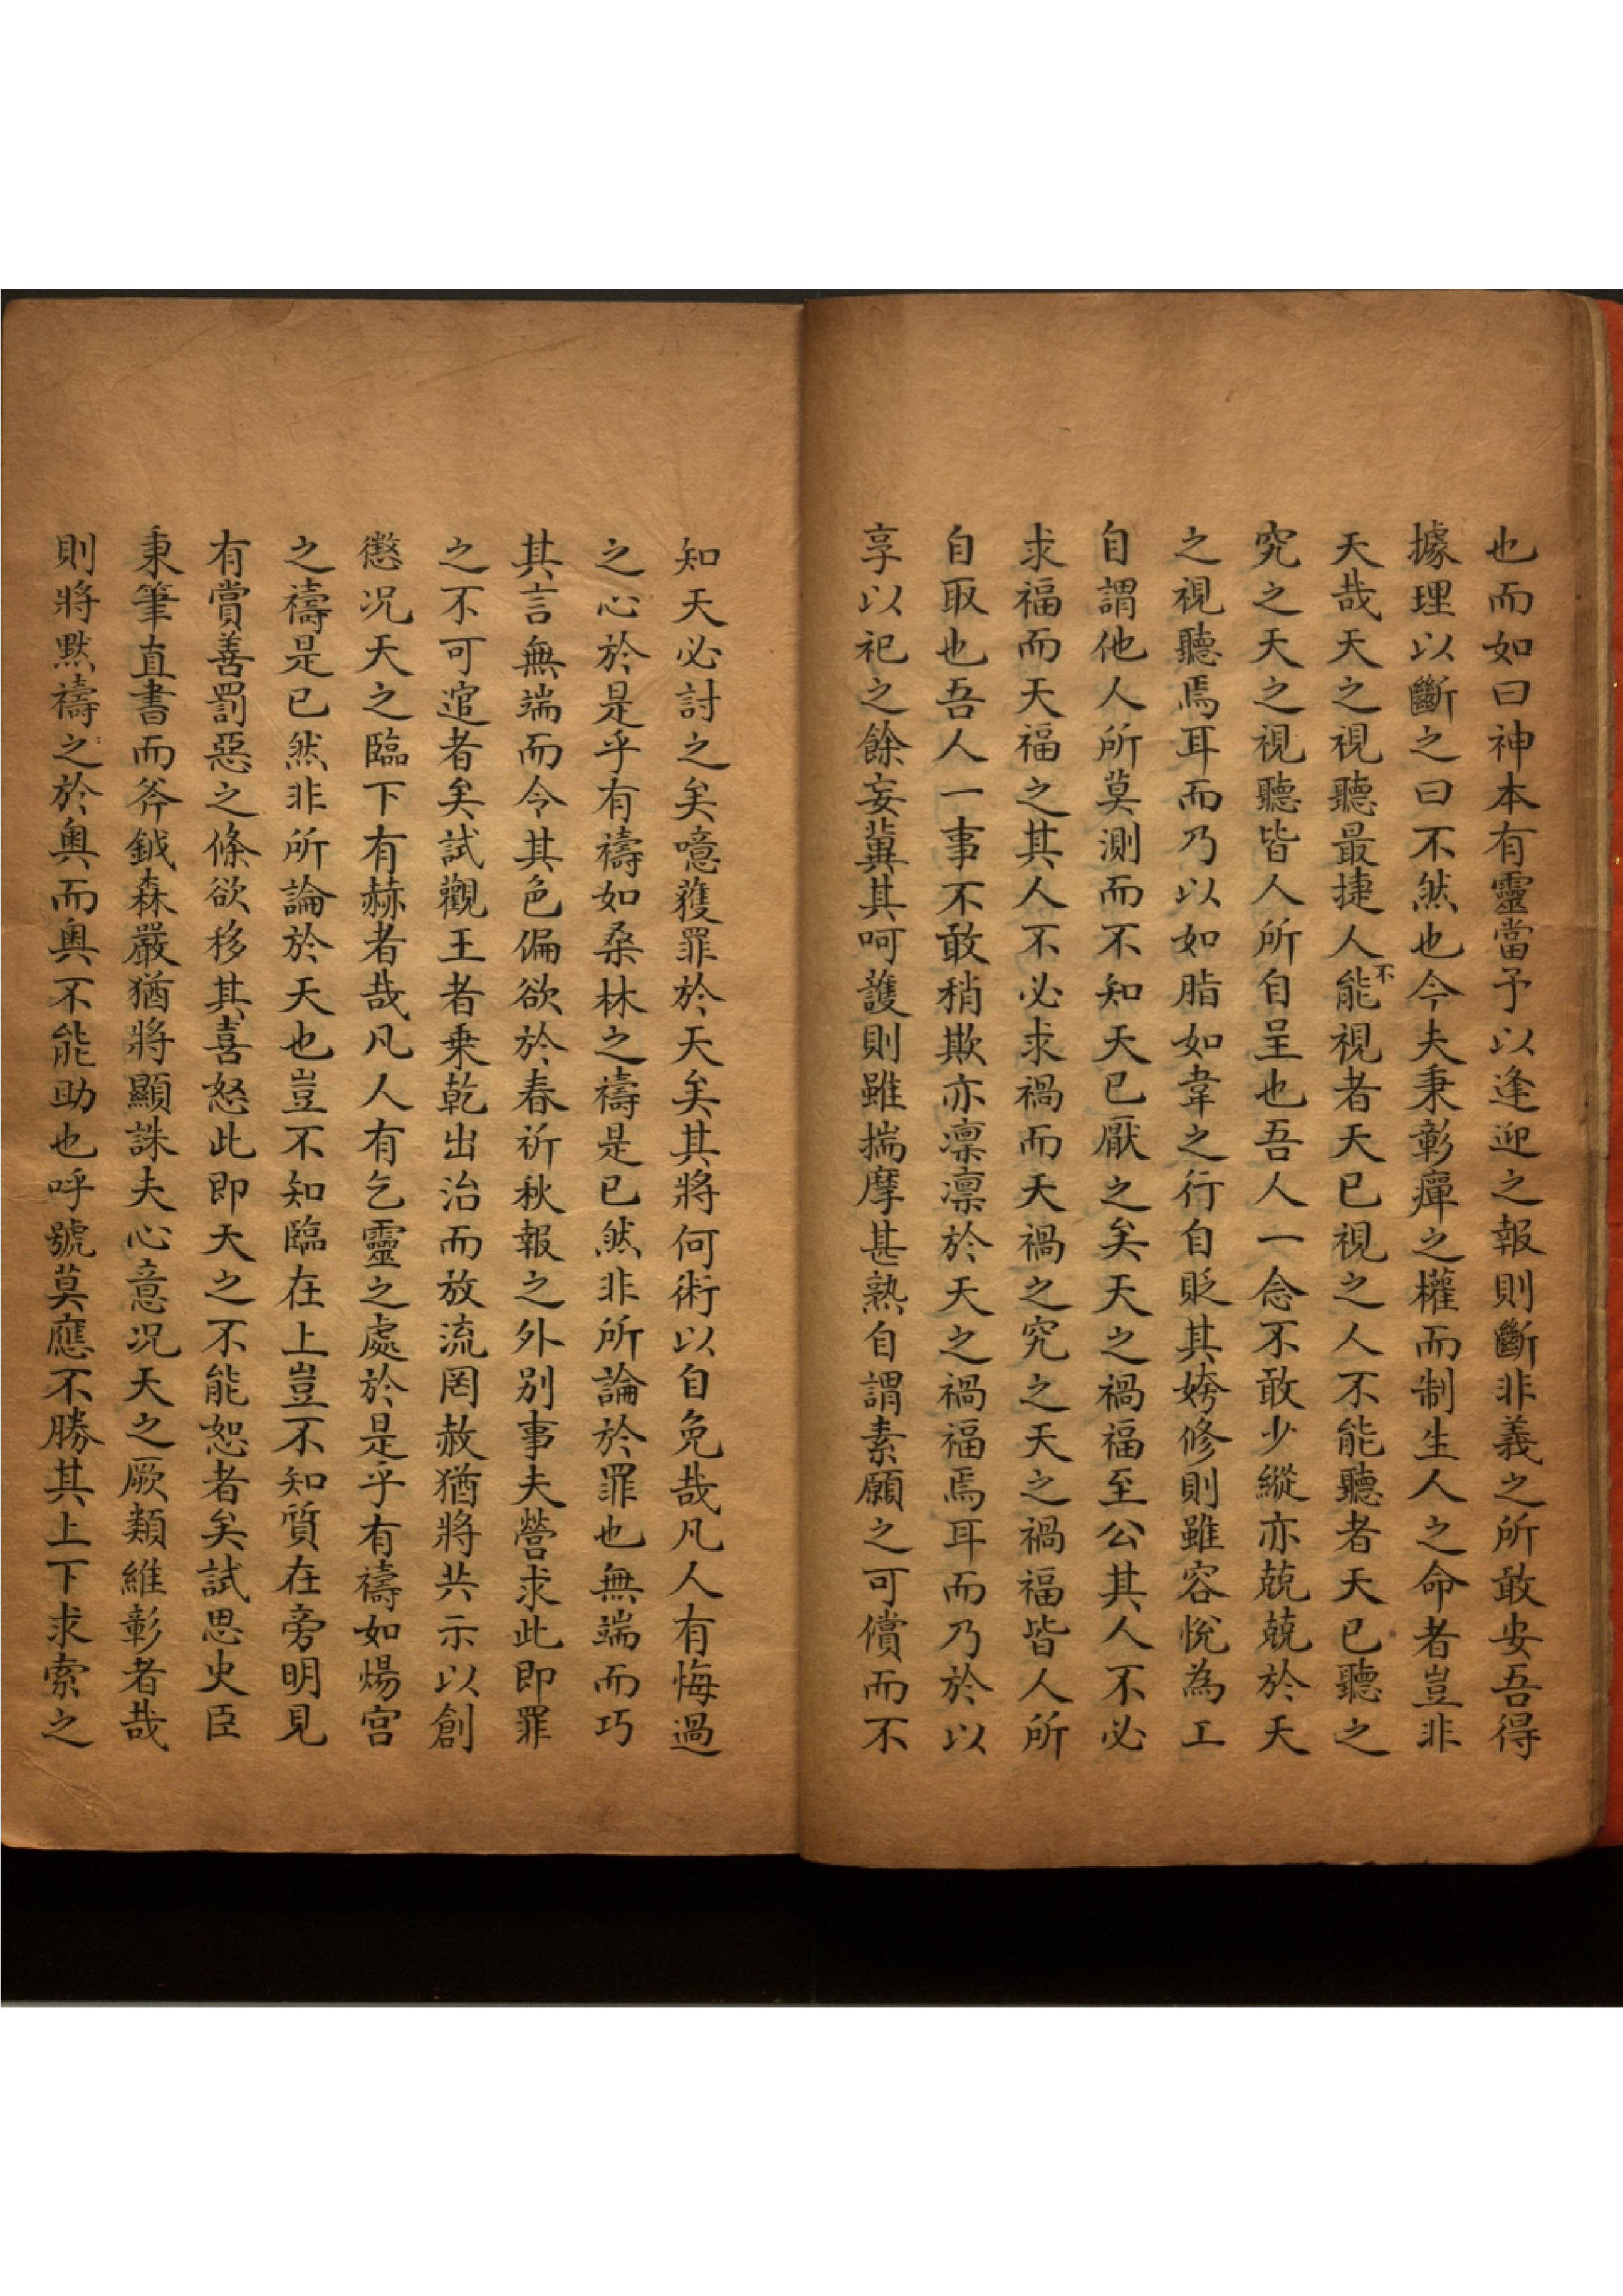 也而如曰神本有靈當予以逢迎之報則斷非義之所敢安吾得
據理以斷之曰不然也今夫秉彰癉之權而制生人之命者豈非
天哉天之視聽最捷人不能視者天已視之人不能聽者天已聽之
究之天之視聽皆人所自呈也吾人一念不敢少縱亦兢兢於天
之視聽焉耳而乃以如脂如韋之行自貶其姱修則雖容悅為工
自謂他人所莫測而不知天已厭之矣天之禍福至公其人不必
求福而天福之其人不必求禍而天禍之究之天之禍福皆人所
自取也吾人一事不敢稍欺亦凜凜於天之禍福焉耳而乃於以
享以祀之餘妄冀其呵護則雖揣摩甚熟自謂素願之可償而不
知天必討之矣噫獲罪於天矣其將何術以自免哉凡人有悔過
之心於是乎有禱如桑林之禱是已然非所論於罪也無端而巧
其言無端而令其色偏欲於春祈秋報之外別事夫營求此即罪
之不可逭者矣試觀王者乘乾出治而放流罔赦猶將共示以創
懲况天之臨下有赫者哉凡人有乞靈之處於是乎有禱如煬宮
之禱是已然非所論於天也豈不知臨在上豈不知質在旁明見
有賞善罰惡之條欲移其喜怒此即天之不能恕者矣試思史臣
秉筆直書而斧鉞森嚴猶將顯誅夫心意况天之厥類維彰者哉
則將默禱之於奧而奧不能助也呼號莫應不勝其上下求索之